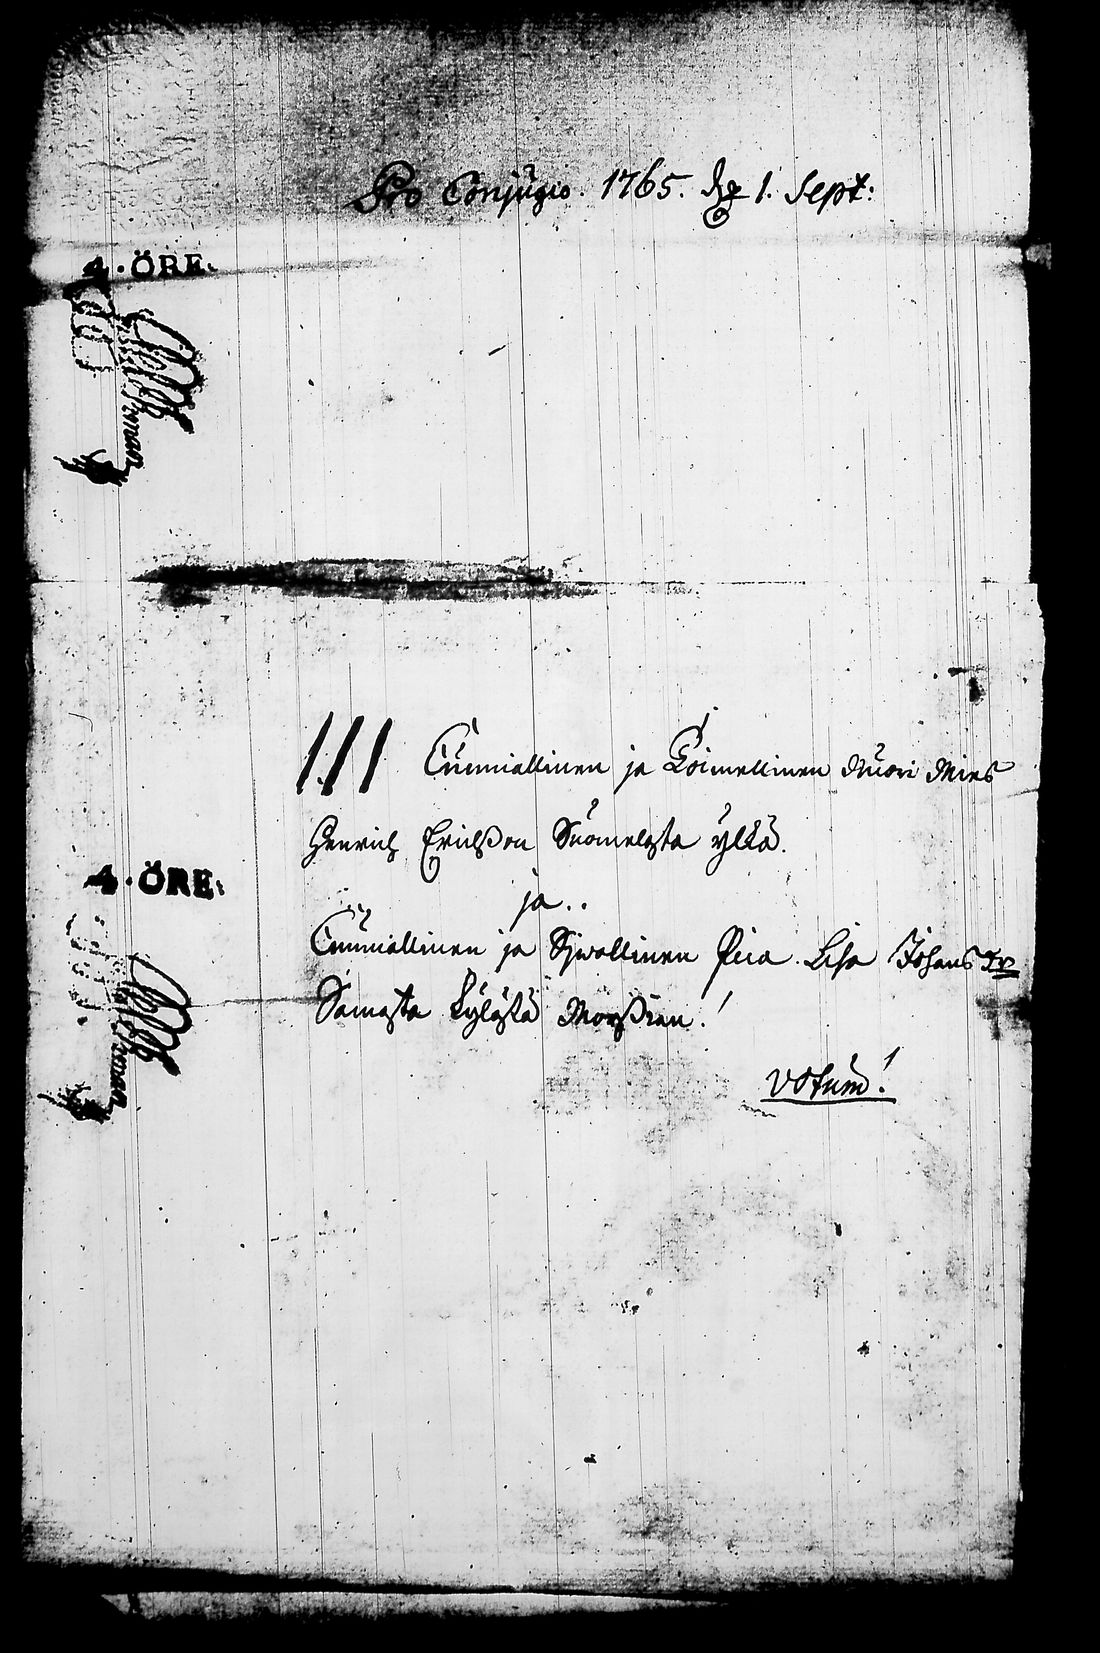 Pro Conjugio. 1765. d. 1. Sept:
4. ÖRE.
/// Cunniallinen ja Toimellinen Nuori Mies
Henrich Erichsson Suomelasta ylkä.
ja..
4. ÖRE.
Cunniallinen ja Sijwollinen Pica Lisa Johans Dr
Samasta Kylästä Morsian!
votum!